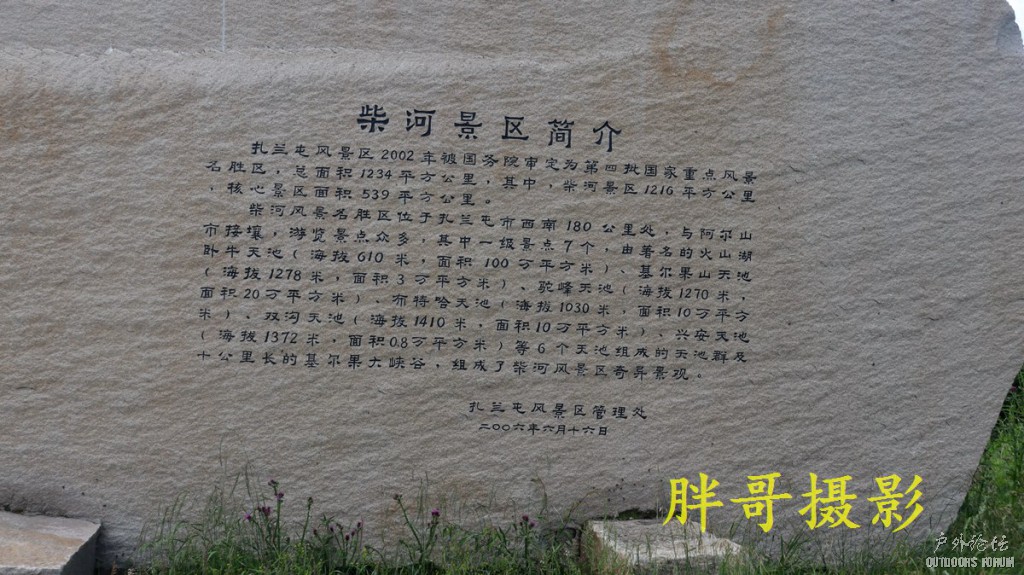 柴河景区简介
扎兰屯风景区2002年被国务院审定为第四批国家重点风景
名胜区，总面积1234平方公里，其中，柴河景区1216平方公里
，核心景区面积539平方公里。
柴河风景名胜区位于扎兰屯市西南180公里处，与阿尔山
市接壤，游览景点众多，其中一级景点7个，由著名的火山湖
卧牛天池（海拔610米，面积100万平方米）、基尔果山天池
（海拔1278米，面积3万平方米）、驼峰天池（海拔1270米，
面积20万平方米）、布特哈天池（海拔1030米，面积10万平方
米）、双沟天池（海拔1410米，面积10万平方米）、兴安天池
（海拔1372米，面积0.8万平方米）等6个天池组成的天池群及
十公里长的基尔果大峡谷，组成了柴河风景区奇异景观。
扎兰屯风景区管理处
二〇〇六年六月十六日
胖哥摄影
户外论坛
OUTDOORS FORUM